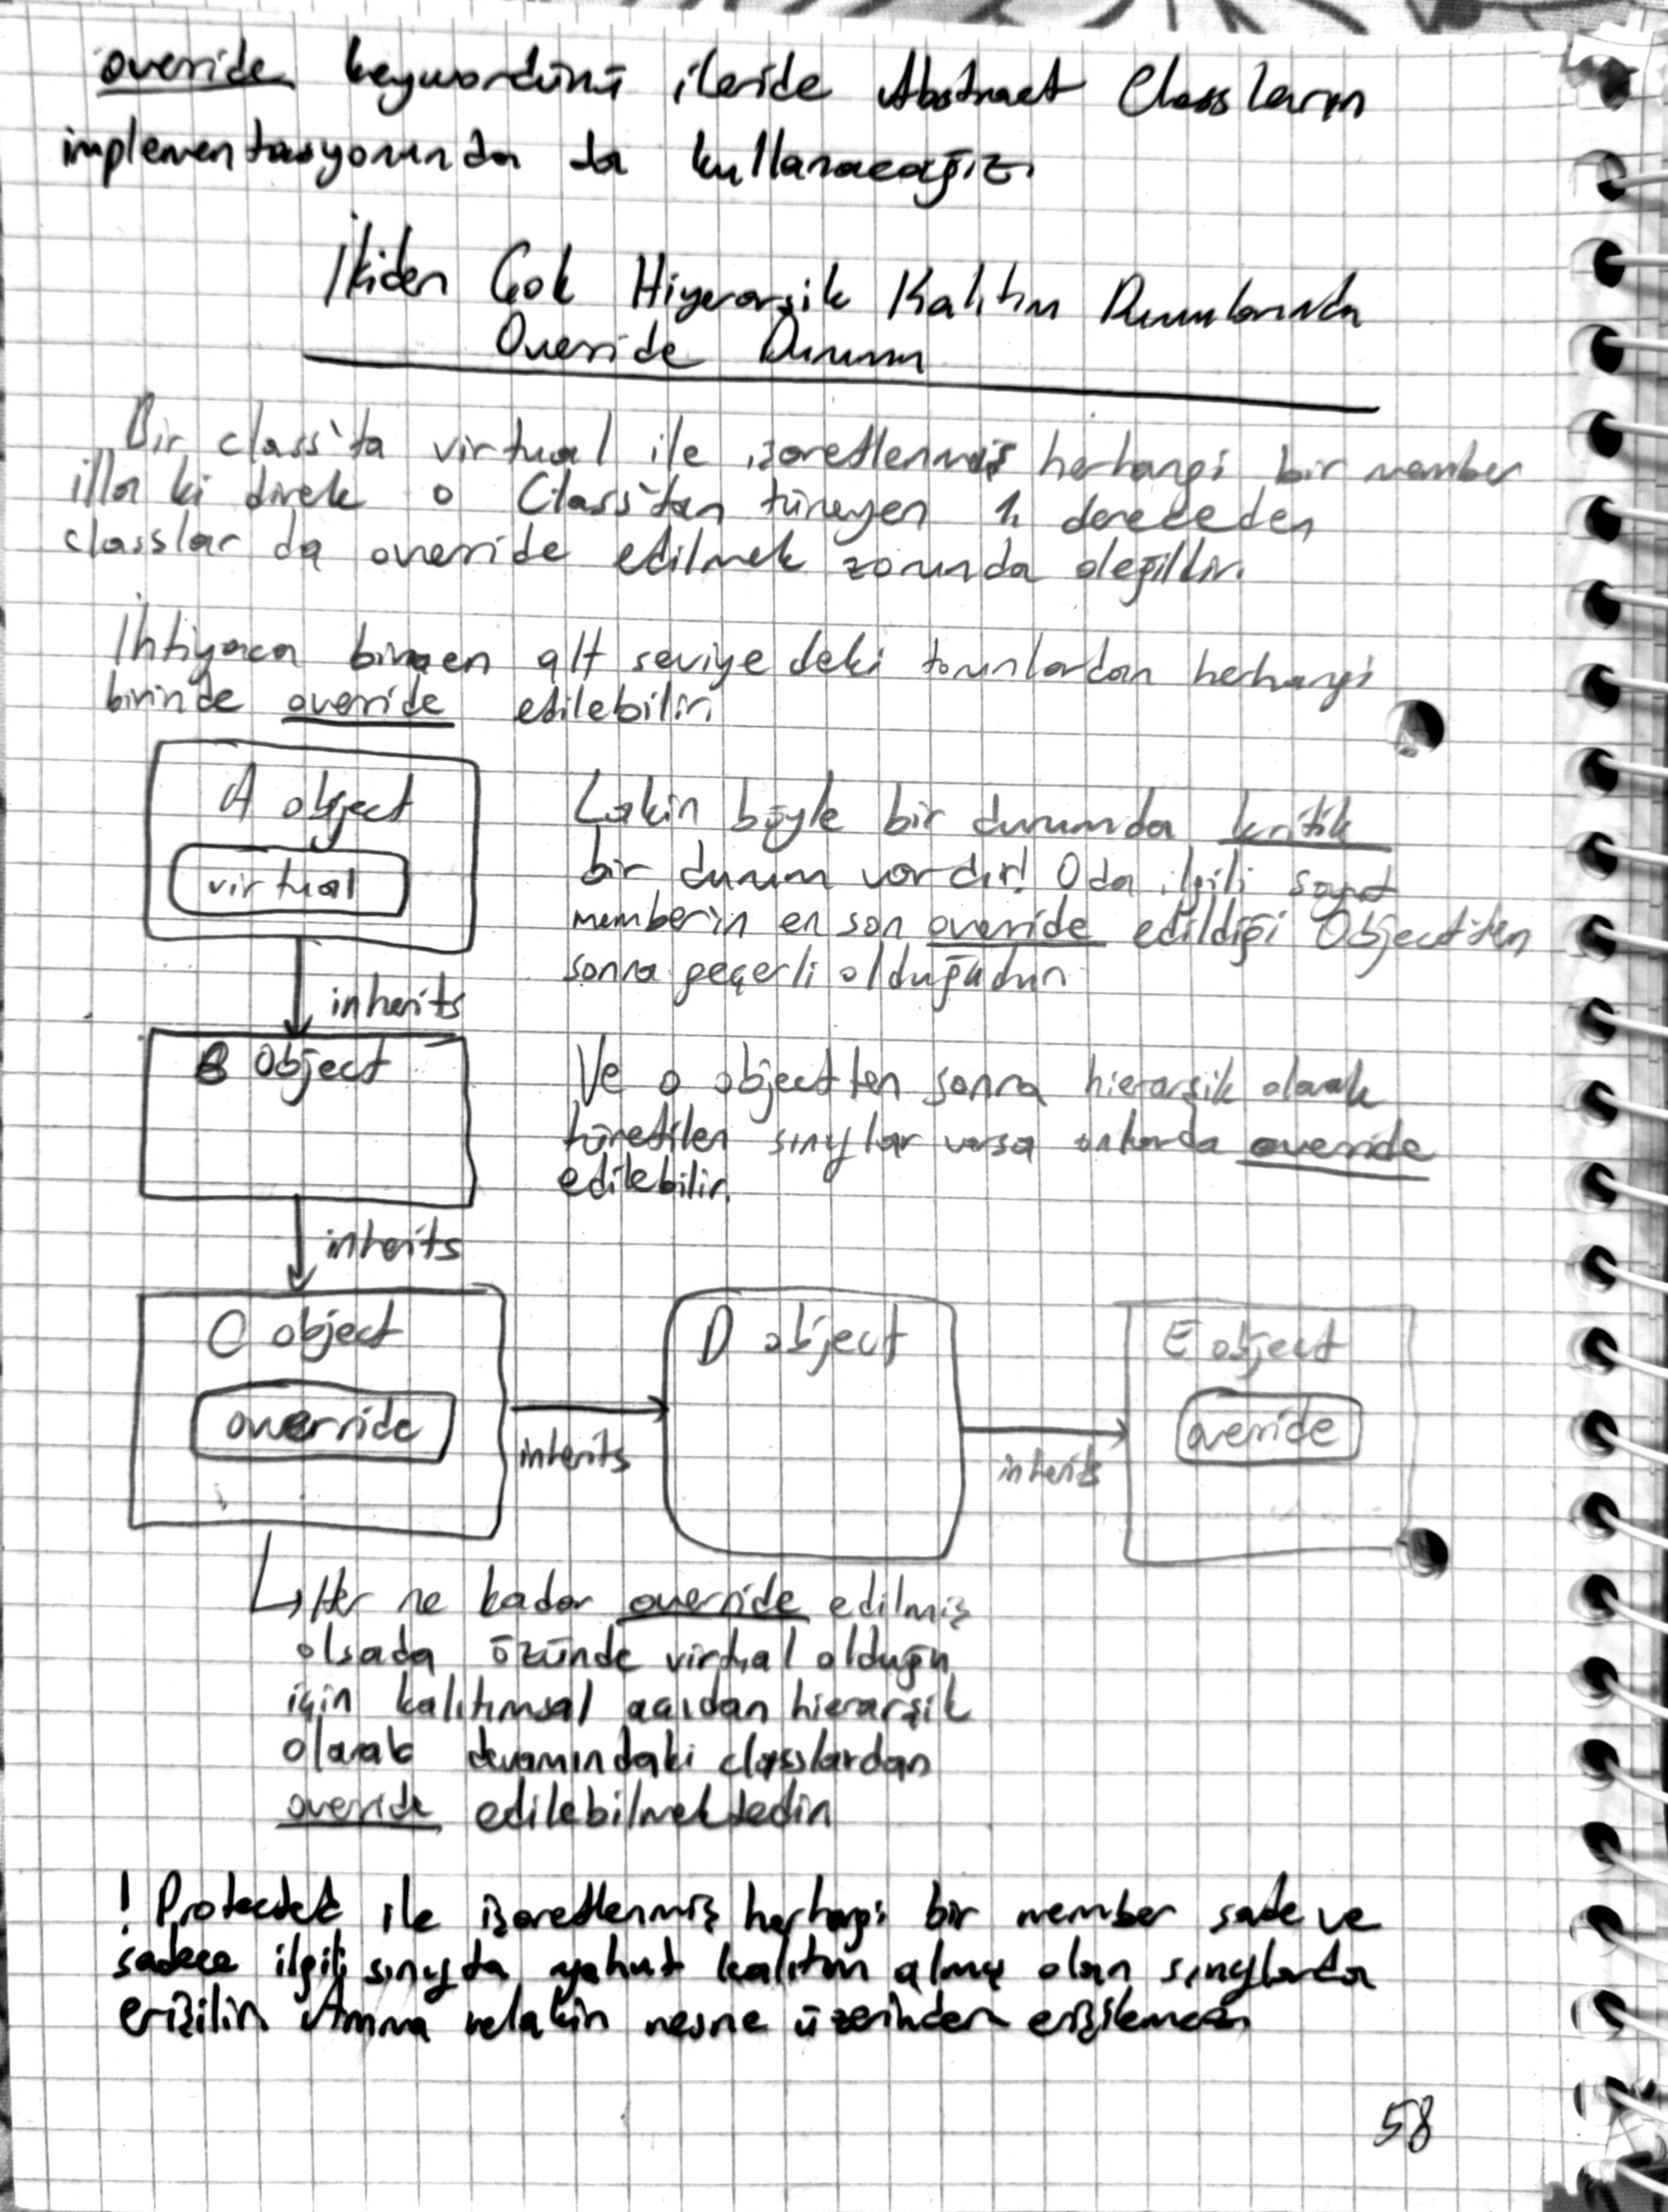 override keywordünü ileride Abstract Classların
implementasyonunda da kullanacağız.
İkiden Çok Hiyerarşik Kalıtım Durumlarında
Override Durumu
Bir class'ta virtual ile işaretlenmiş herhangi bir member
illa ki direk o Class'tan türeyen 1. dereceden
classlar da override edilmek zorunda değildir.
İhtiyaca binaen alt seviye deki torunlardan herhangi
birinde override edilebilir.
A object
virtual
Lakin böyle bir durumda kritik
bir durum vardır! Oda ilgili
memberin en son override edildiği Object'ten
sonra geçerli olduğudur.
inherits
B Object
Ve o objectten sonra hierarşik olarak
türetilen sınıflar varsa onlarda override
edilebilir.
inherits
C object
override
inherits
D object
inherits
E object
overide
Her ne kadar override edilmiş
olsada özünde virtual olduğu
için kalıtımsal açıdan hierarşik
olarak devamındaki classlardan
override edilebilmektedir.
! Protected ile işaretlenmiş herhangi bir member sade ve
sadece ilgili sınıfta yahut kalıtım almış olan sınıflarda
erişilir. Amma velakin nesne üzerinden erişilemez
58